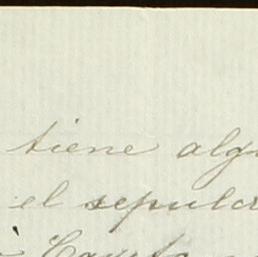 tiene alg
el sepulc